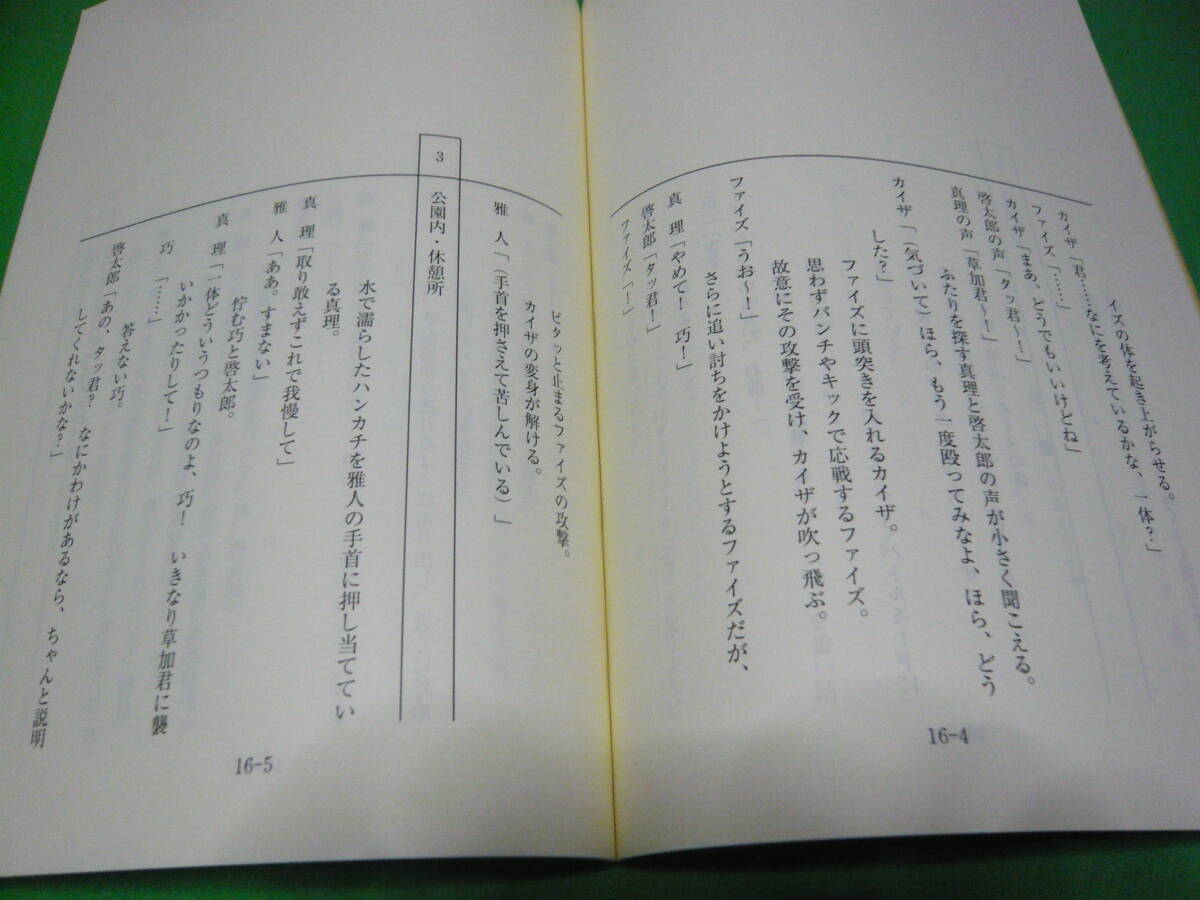 イズの体を起き上がらせる。
カイザ「君……なにを考えているかな、一体？」
ファイズ「……」
カイザ「まあ、どうでもいいけどね」
啓太郎の声「タッ君〜！」
真理の声「草加君〜！」
ふたりを探す真理と啓太郎の声が小さく聞こえる。
カイザ「（気づいて）ほら、もう一度殴ってみなよ、ほら、どう
した？」
ファイズに頭突きを入れるカイザ。
思わずパンチやキックで応戦するファイズ。
故意にその攻撃を受け、カイザが吹っ飛ぶ。
ファイズ「うお〜！」
さらに追い討ちをかけようとするファイズだが、
真　理「やめて！　巧！」
啓太郎「タッ君！」
ファイズ「！」
16-4
ピタッと止まるファイズの攻撃。
カイザの変身が解ける。
雅　人「（手首を押さえて苦しんでいる）」
3　公園内・休憩所
水で濡らしたハンカチを雅人の手首に押し当ててい
る真理。
真　理「取り敢えずこれで我慢して」
雅　人「ああ。すまない」
佇む巧と啓太郎。
真　理「一体どういうつもりなのよ、巧！　いきなり草加君に襲
いかかったりして！」
巧　「……」
答えない巧。
啓太郎「あの、タッ君？　なにかわけがあるなら、ちゃんと説明
してくれないかな？」
16-5